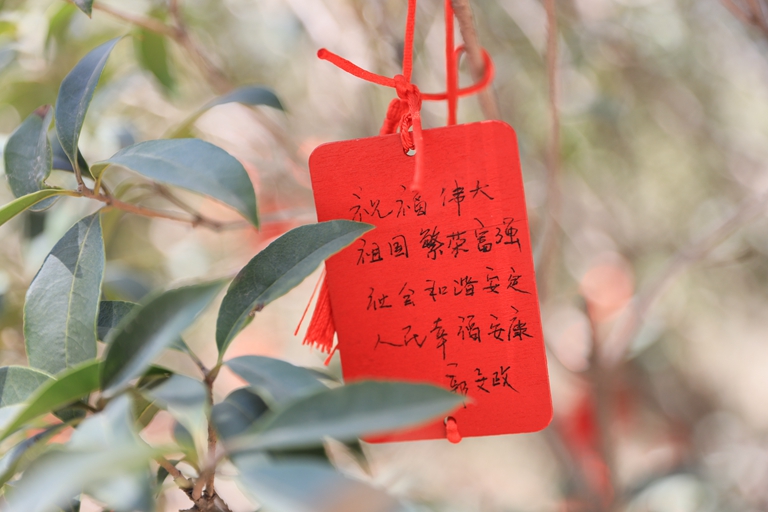 祝福伟大
祖国繁荣富强
社会和谐安定
人民幸福安康